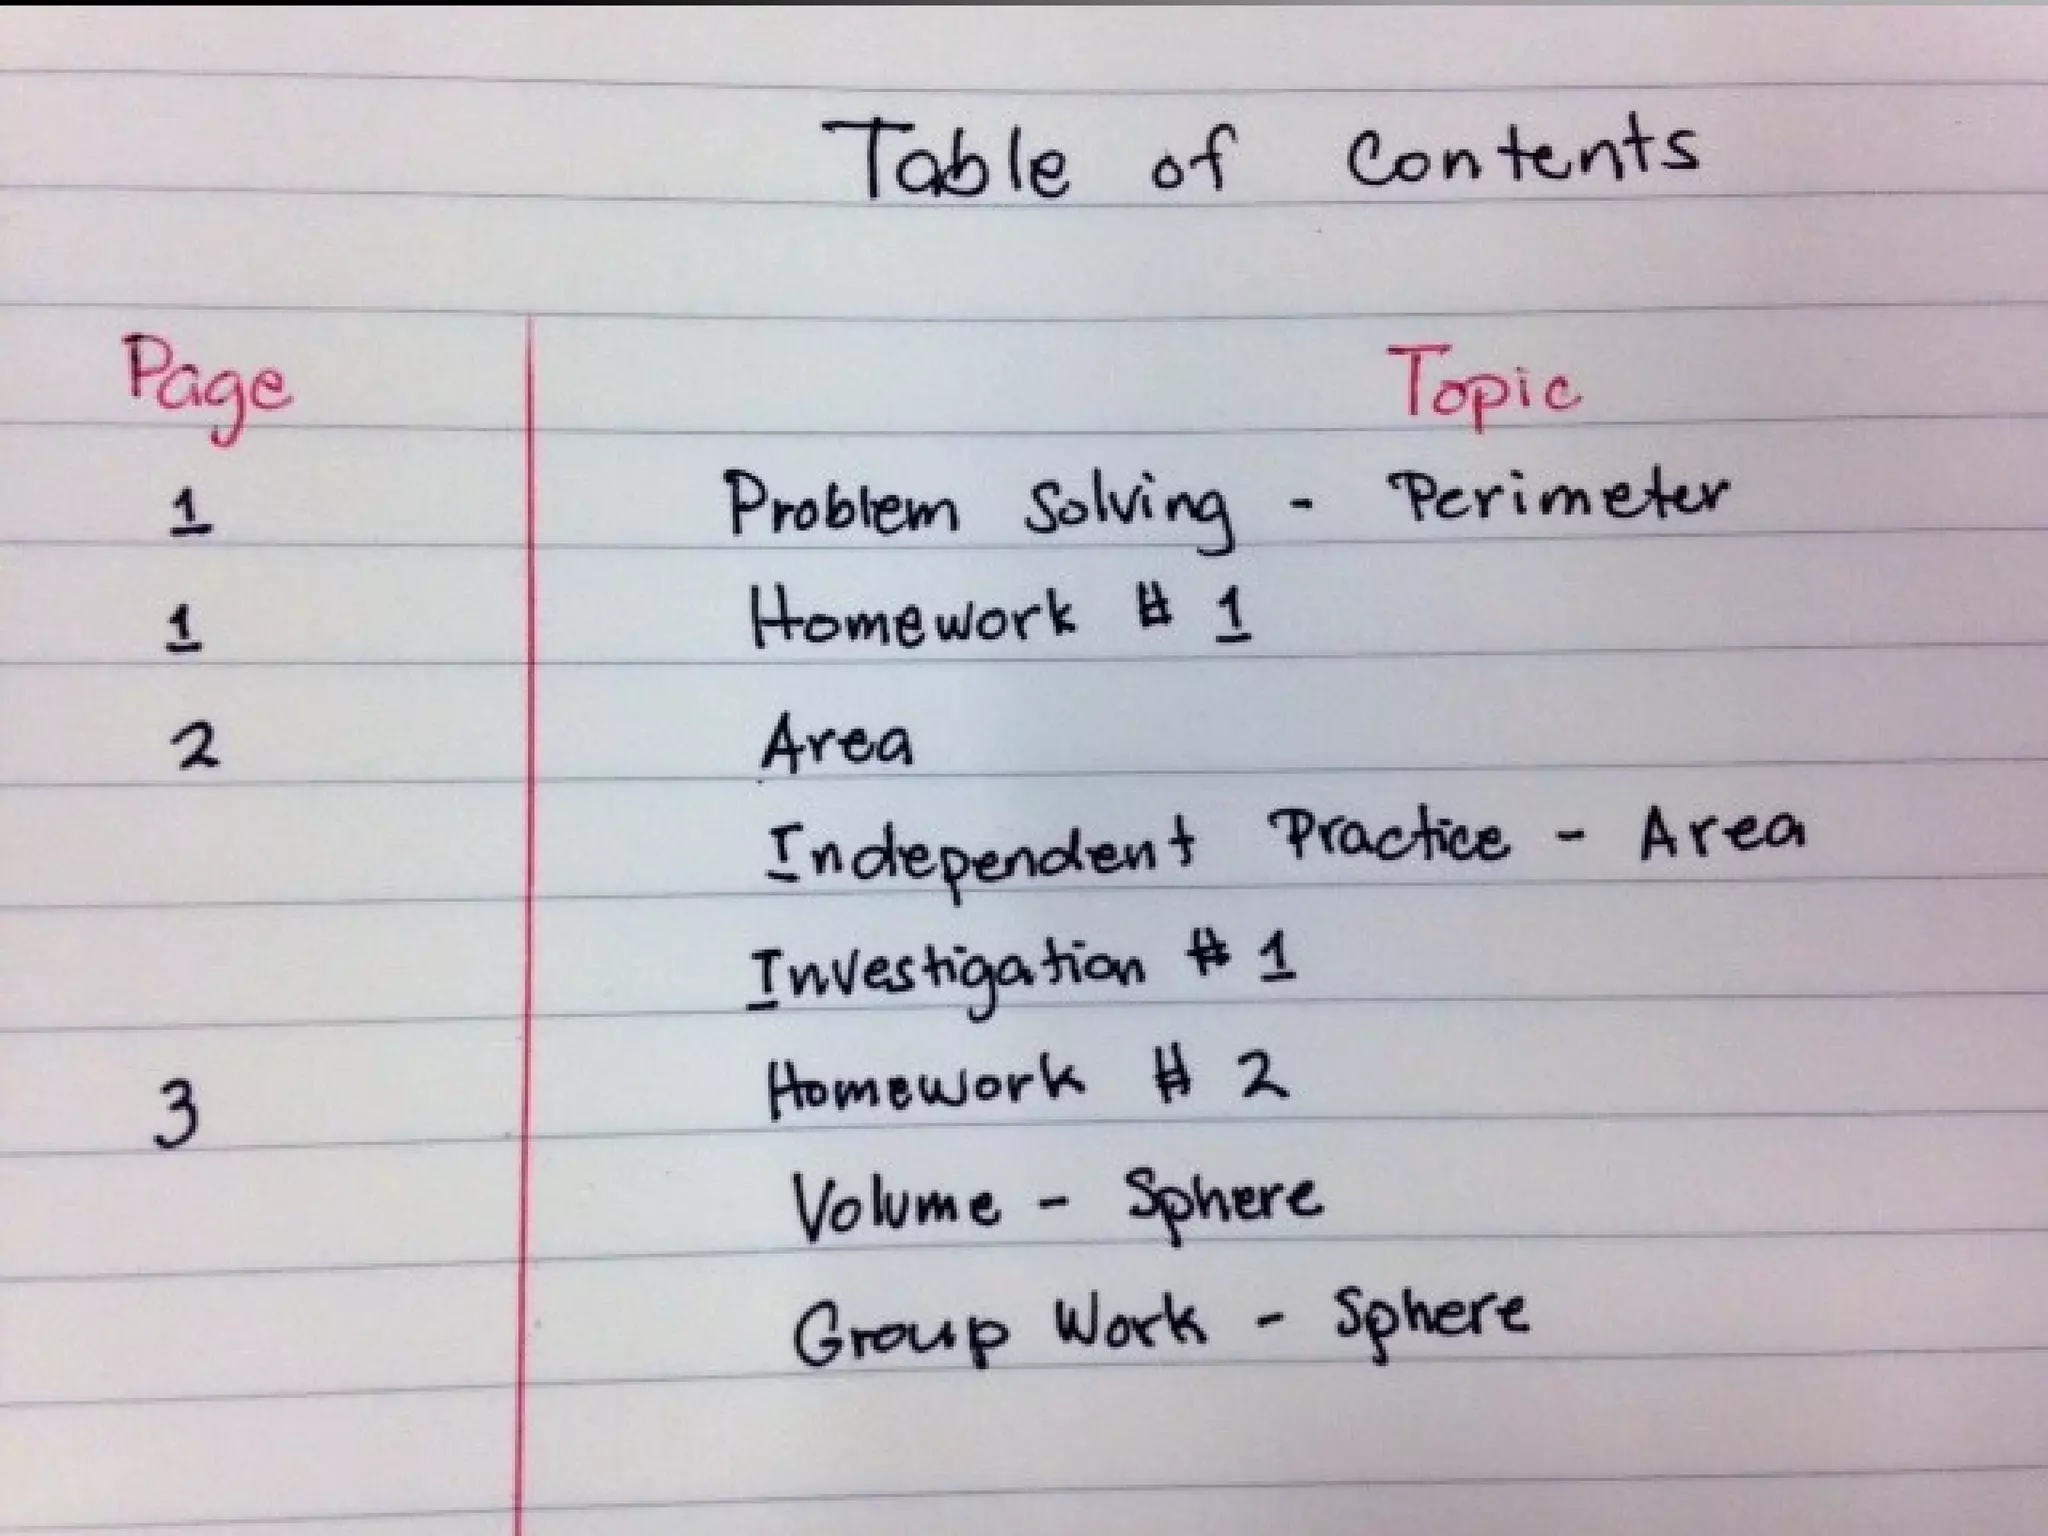 Table of Contents
Page Topic
1 Problem Solving - Perimeter
1 Homework # 1
2 Area
Independent Practice - Area
Investigation # 1
3 Homework # 2
Volume - Sphere
Group Work - Sphere